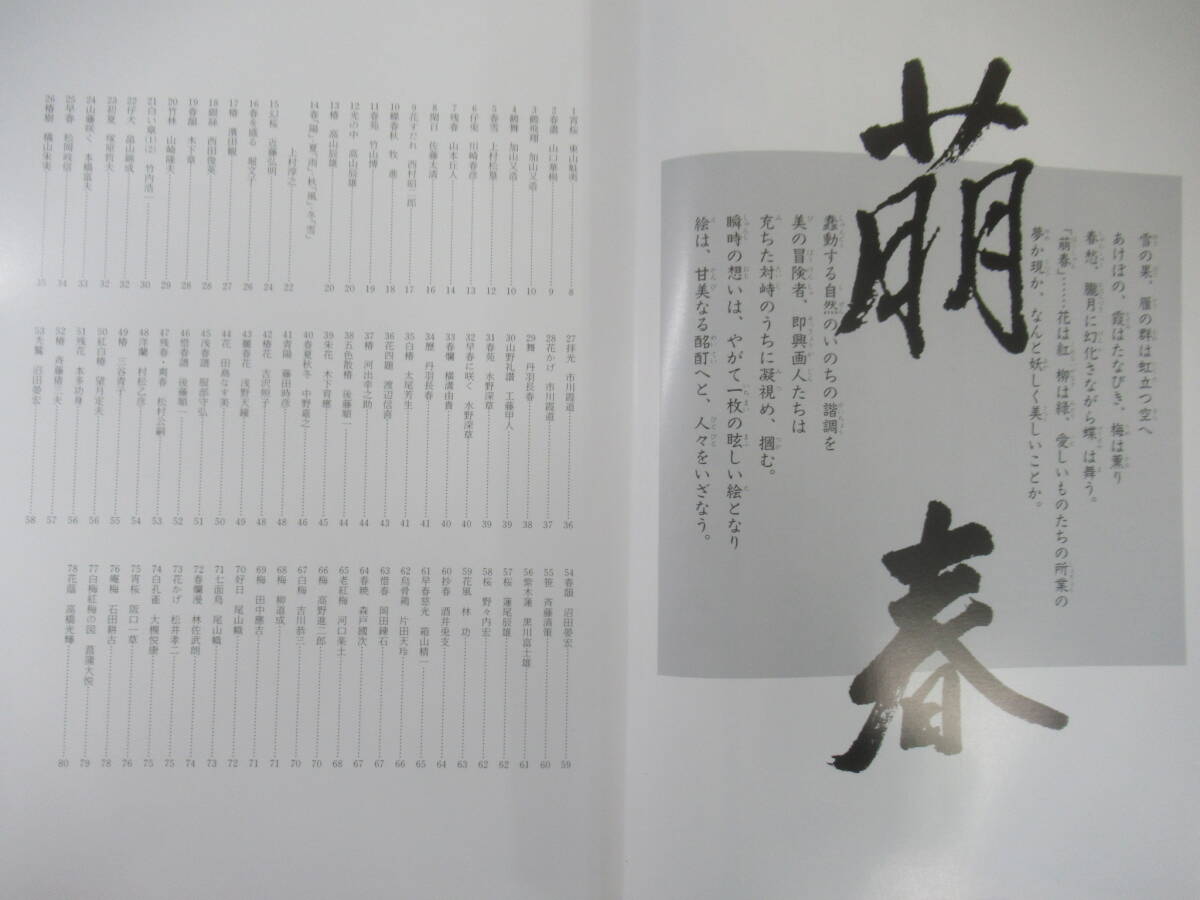 萌春
雪の果、雁の群は虹立つ空へ
あけぼの、霞はたなびき、梅は薫り
春愁、朧月に幻化さながら蝶は舞う。
「萌春」……花は紅 柳は緑、愛しいものたちの所業の
夢か現か、なんと妖しく美しいことか。
蠢動する自然のいのちの諧調を
美の冒険者、即興画人たちは
充ちた対峙のうちに凝視め、摑む。
瞬時の想いは、やがて一枚の眩しい絵となり
絵は、甘美なる酩酊へと、人々をいざなう。
1 宵桜 東山魁夷 8
2 春濃 山口華楊 9
3 鶴飛翔 加山又造 10
4 鶴舞 加山又造 10
5 春雪 上村松篁 12
6 仔兎 川崎春彦 13
7 残春 山本丘人 14
8 閑日 佐藤太清 16
9 花すだれ 西村昭二郎 17
10 蝶春秋 牧 進 18
11 春苑 竹山博 19
12 光の中 高山辰雄 20
13 椿 高山辰雄 20
14 春「陽」・夏「雨」・秋「風」・冬「雪」
上村淳之 22
15 幻桜 近藤弘明 24
16 春を盛る 堀文子 26
17 椿 濱田観 27
18 銀緑 西田俊英 28
19 春韻 木下章 28
20 竹林 山崎隆夫 29
21 白い章(1)(2) 竹内浩一 30
22 仔犬 畠山錦成 32
23 初夏 塚原哲夫 32
24 山藤咲く 本橋嵐夫 33
25 早春 松岡政信 34
26 椿樹 横山末実 35
27 拝光 市川霞道 36
28 花かげ 市川霞道 37
29 舞 丹羽長春 38
30 山野礼讃 工藤甲人 39
31 春苑 水野深草 39
32 早春に咲く 水野深草 40
33 春爛 横溝由貴 40
34 暦 丹羽長春 41
35 白椿 太尾芳生 41
36 花四題 渡辺信喜 43
37 椿 河出幸之助 44
38 五色散椿 後藤順一 44
39 朱花 木下育應 45
40 春夏秋冬 中野嘉之 46
41 青陽 藤田時彦 48
42 椿花 吉沢照子 48
43 麗春花 浅野天鐘 49
44 花 田島なす美 50
45 浅春譜 服部守弘 51
46 惜春譜 後藤順一 52
47 残春・爽春 松村公嗣 53
48 洋蘭 村松乙彦 54
49 椿 三谷青子 55
50 紅白椿 望月定夫 56
51 残花 本多功身 56
52 椿 斉藤椿之夫 57
53 犬鷲 沼田晏宏 58
54 春韻 沼田晏宏 59
55 笹 斉藤清策 60
56 紫木蓮 黒川富士雄 61
57 桜 蓮尾辰雄 62
58 桜 野々内宏 62
59 花風 林 功 63
60 抄春 酒井重支 64
61 早春慈光 箱山桔一 65
62 烏骨鶏 片田天玲 66
63 惜春 岡田錬石 67
64 春暁 森戸國次 67
65 老紅梅 河口楽土 68
66 梅 高野進二郎 70
67 白梅 吉川恭三 70
68 梅 柳道成 71
69 梅 田中應吉 71
70 好日 尾山幟 72
71 七面鳥 尾山幟 73
72 春爛漫 林佐武朗 74
73 花かげ 松井孝二 75
74 白孔雀 大槻悦康 75
75 宵桜 阪口一草 76
76 庵梅 石田耕古 78
77 白梅紅梅の図 菖蒲大悦 79
78 花蔭 高橋光輝 80